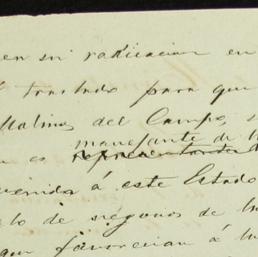 en su radicacion en
traslado para que
Molino del Campo, s
manejante de
es representante
venido á este Estado
lo de negocios de
que favorecian á